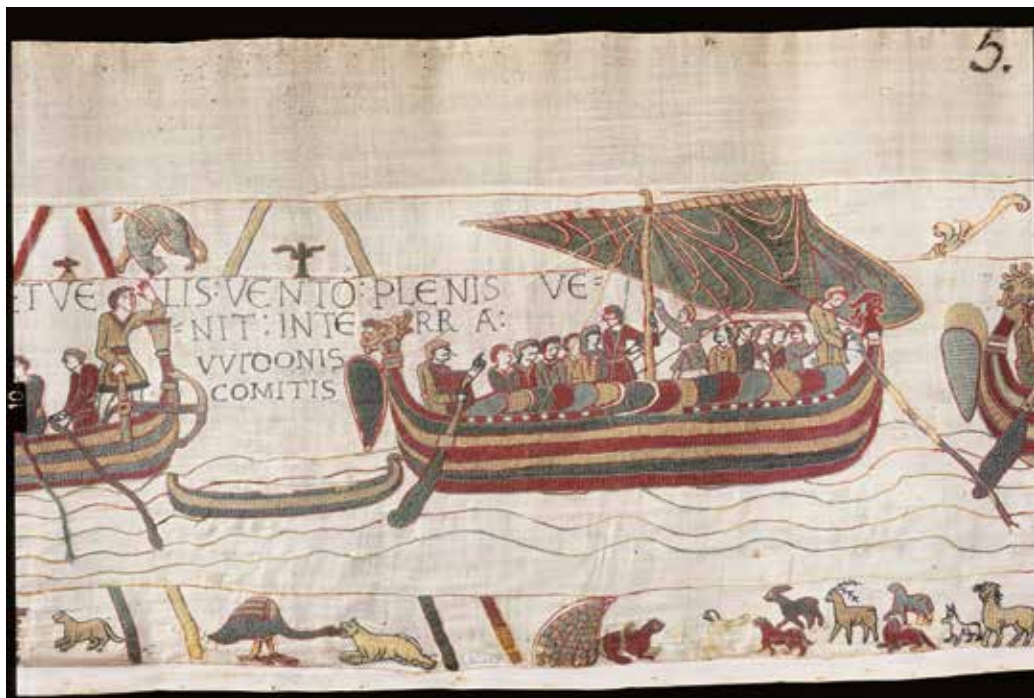 5.
ET VE LIS : VENTO : PLENIS VE =
= NIT : INTE RR A :
VVIDONIS
COMITIS
10